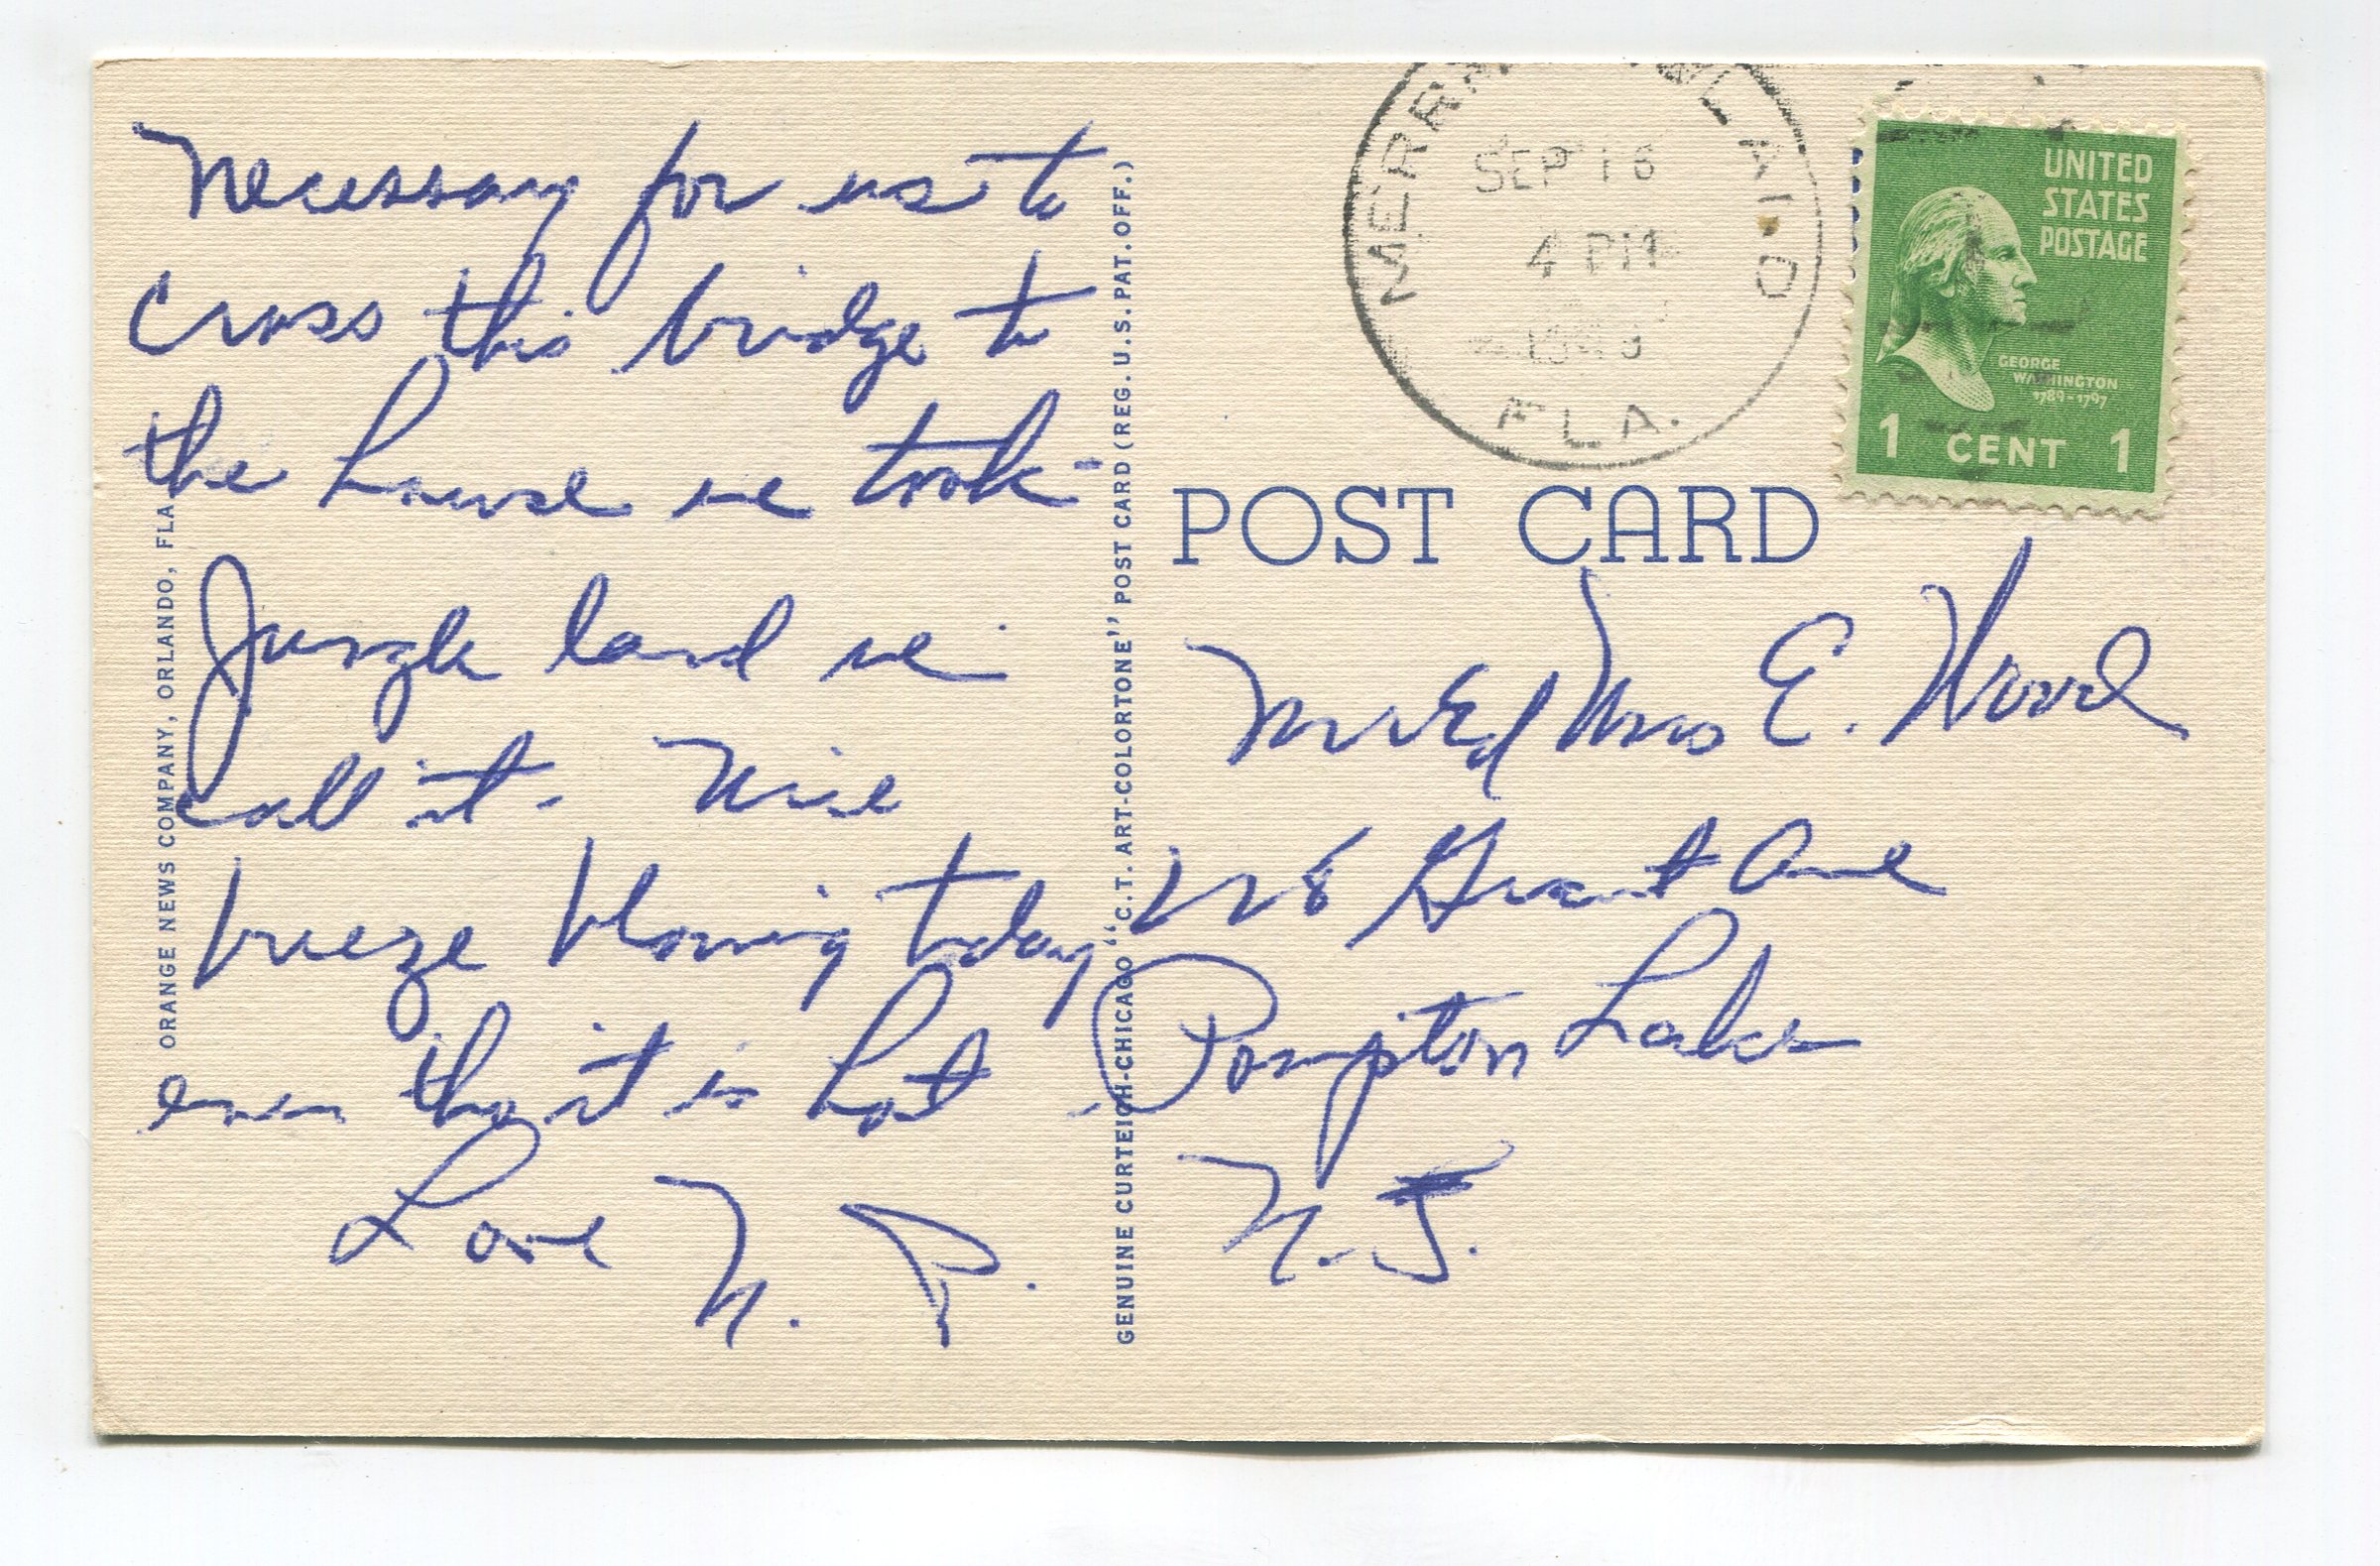 Necessary for us to
cross this bridge to
the house we took -
Jungle land we
call it - Nice
breeze blowing today
even tho it is hot
Love N. P.
ORANGE NEWS COMPANY, ORLANDO, FLA.
GENUINE CURTEICH-CHICAGO "C.T. ART-COLORTONE" POST CARD (REG. U.S. PAT. OFF.)
SEP 16
4 PM
FLA.
UNITED
STATES
POSTAGE
GEORGE
WASHINGTON
1789-1797
1 CENT 1
POST CARD
Mrs E. Wood
228 Grant Ave
Pompton Lakes
N.J.